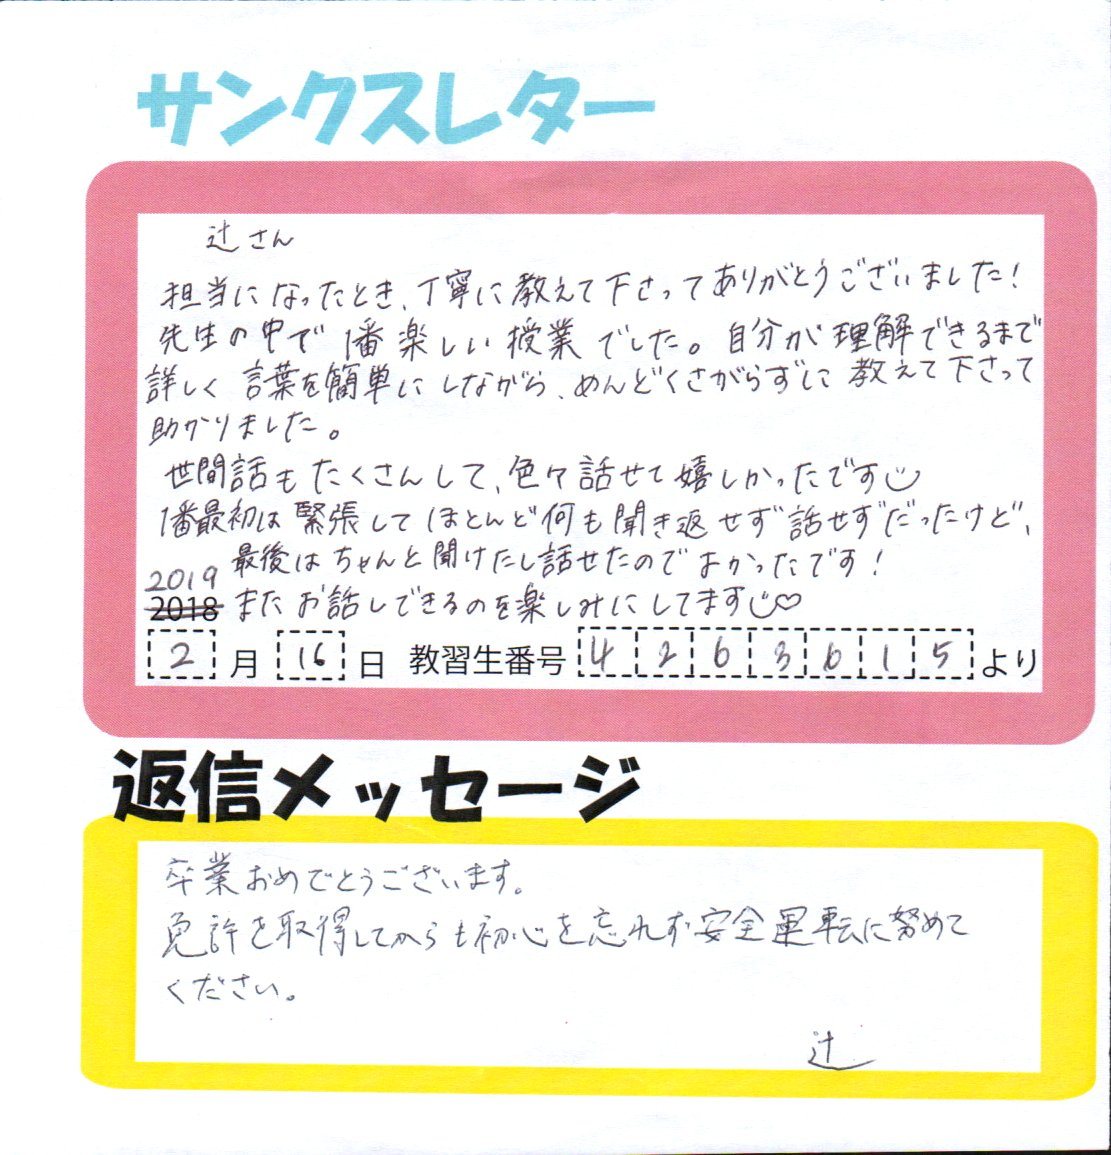 サンクスレター
辻さん
担当になったとき、丁寧に教えて下さってありがとうございました!
先生の中で1番楽しい授業でした。自分が理解できるまで
詳しく言葉を簡単にしながら、めんどくさがらずに教えて下さって
助かりました。
世間話もたくさんして、色々話せて嬉しかったです
1番最初は緊張してほとんど何も聞き返せず話せずだったけど、
最後はちゃんと聞けたし話せたのでよかったです!
2019
2018 またお話しできるのを楽しみにしてます♡
2月16日 教習生番号 4263615より
返信メッセージ
卒業おめでとうございます。
免許を取得してからも初心を忘れず安全運転に努めて
ください。
辻